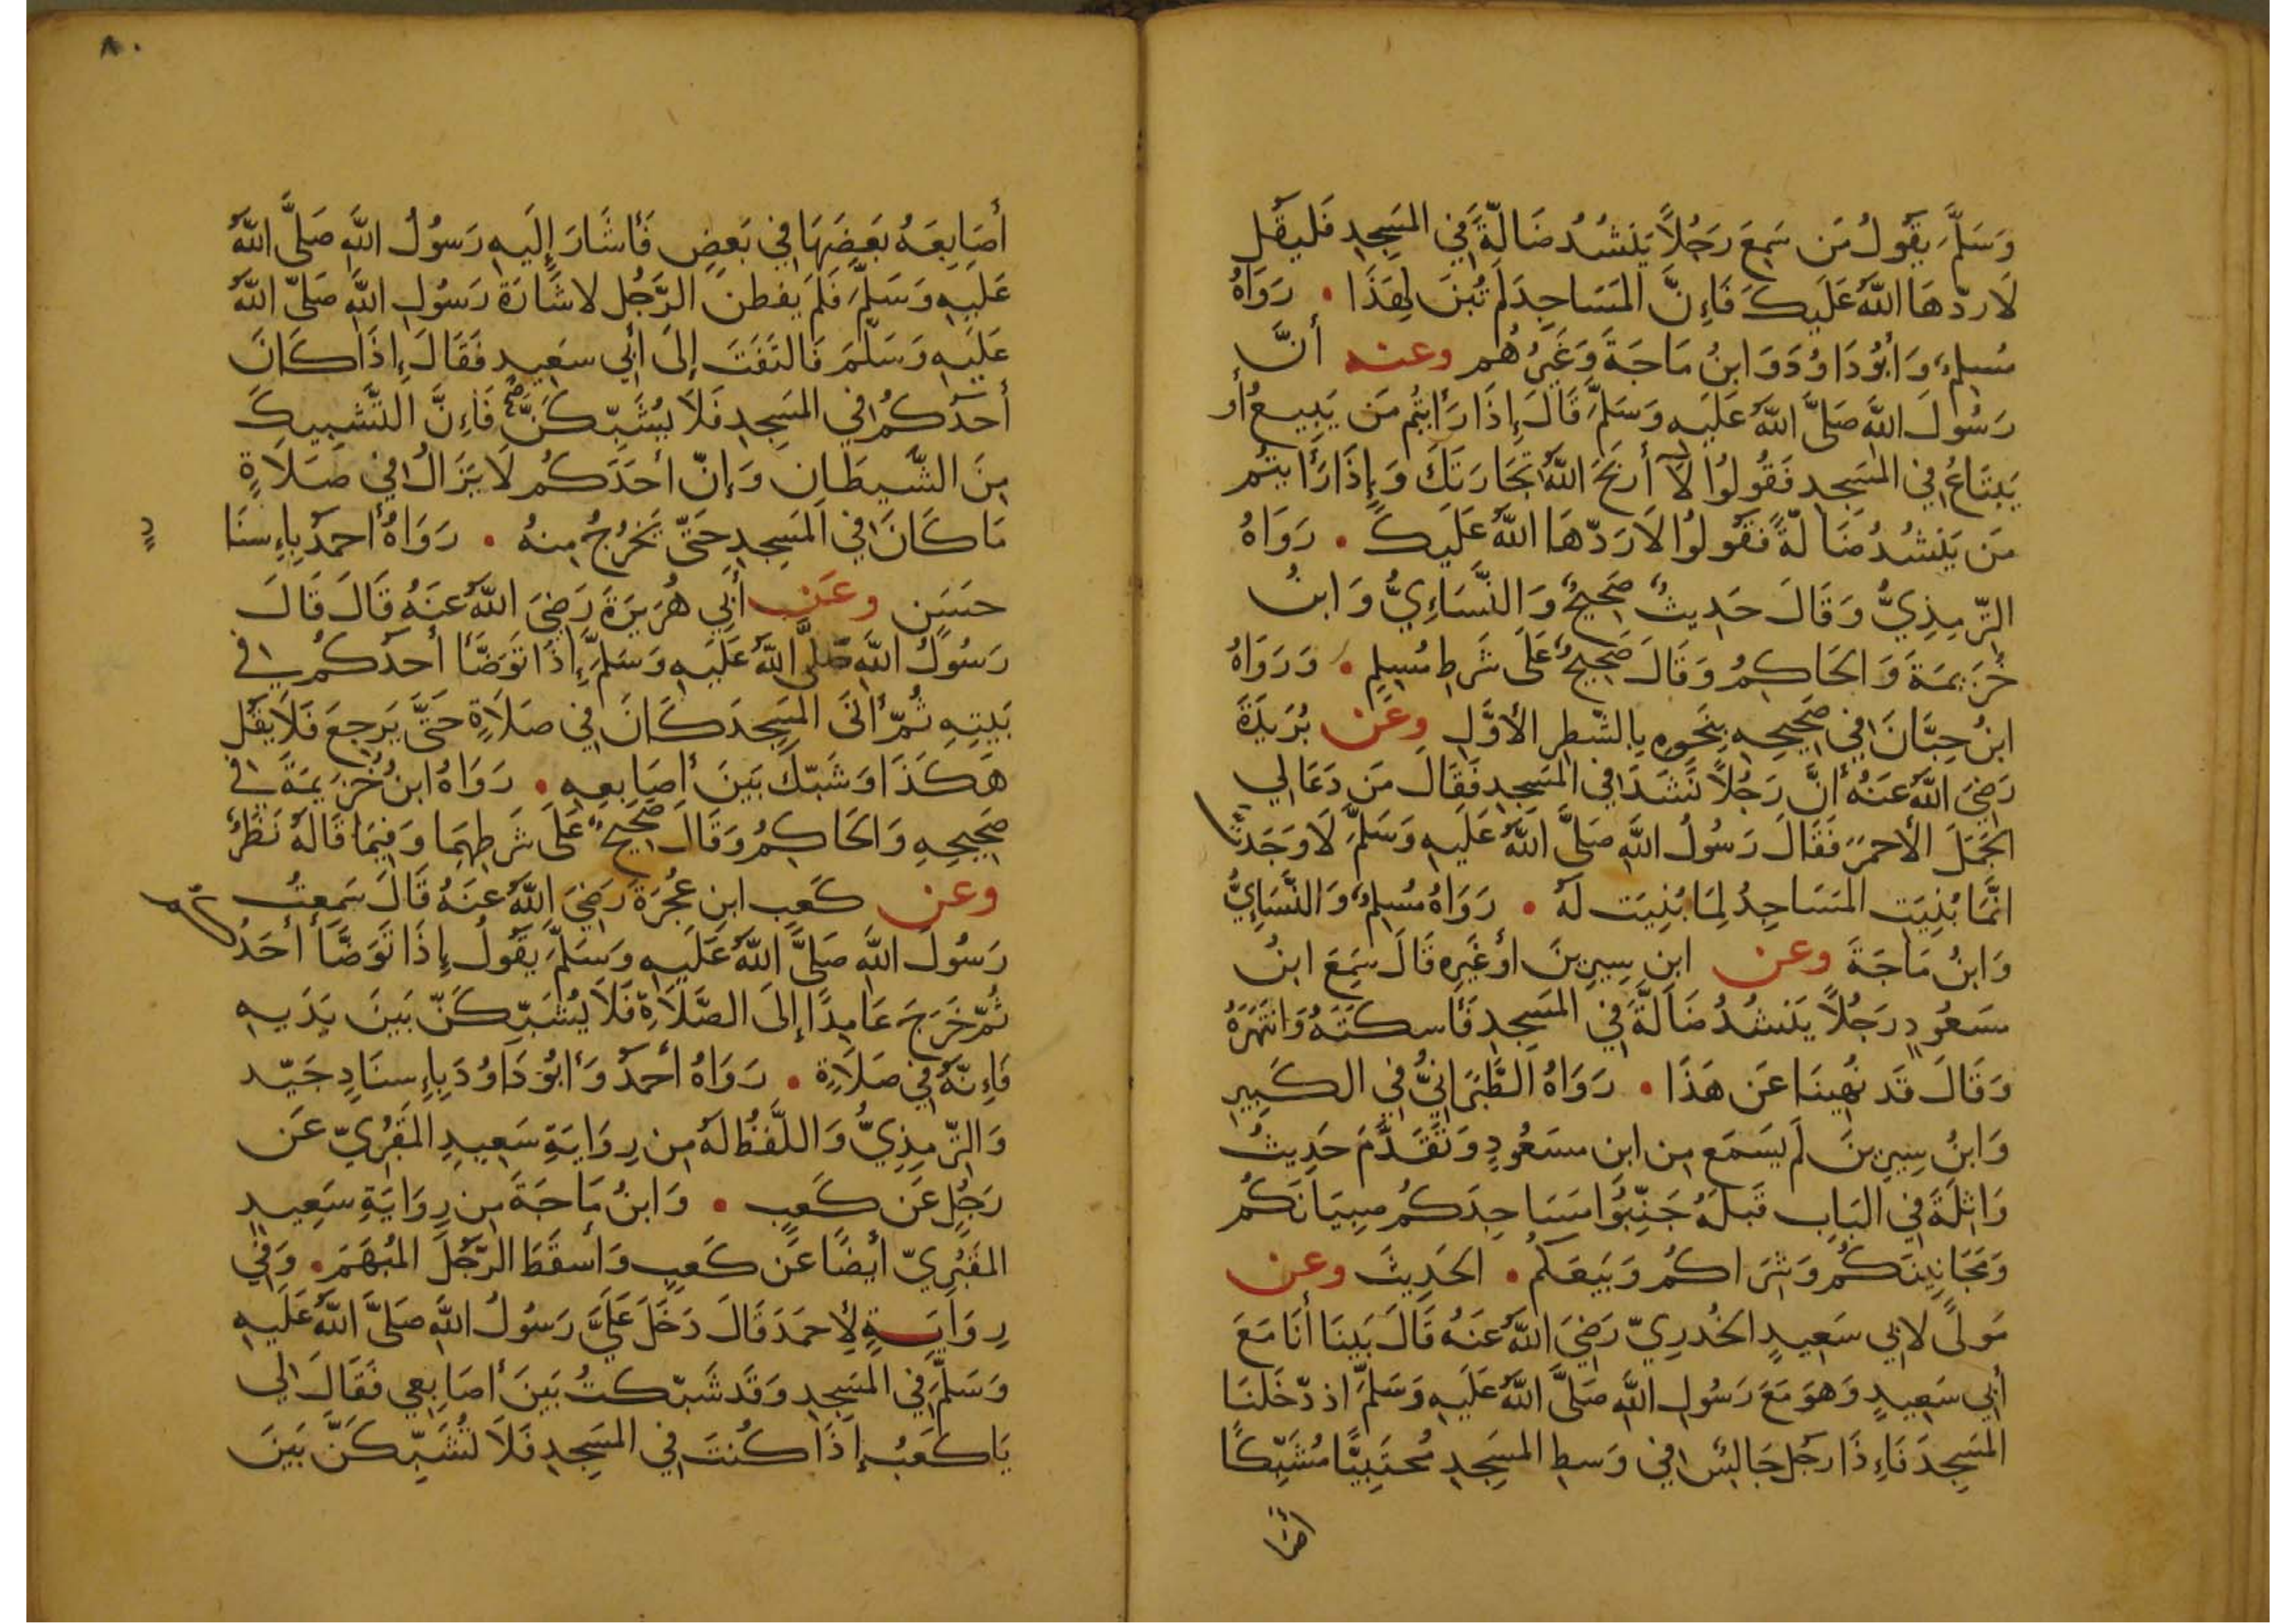 وَسَلَّمَ يَقُولُ مَن سَمِعَ رَجُلاً يَنشُدُ ضَالَّةً فِي المَسَجِدِ فَليَقُل
لَا ردّهَا اللَّهُ عَلَيكَ فَإِنَّ المَسَاجِدَ لَم تُبنَ لِهَذَا . رَوَاهُ
مُسلِمٌ وَأَبُو دَاوُدَ وَابنُ مَاجَةَ وَغَيرُهُم وعنه أَنَّ
رَسُولَ اللَّهِ صَلَّى اللَّهُ عَلَيهِ وَسَلَّمَ قَالَ إِذَا رَأَيتُم مَن يَبِيعُ أَو
يَبتَاعُ فِي المَسَجِدِ فَقُولُوا لَا أَربَحَ اللَّهُ تِجَارَتَكَ وَإِذَا رَأَيتُم
مَن يَنشُدُ ضَالَّةً فَقُولُوا لَا رَدّهَا اللَّهُ عَلَيكَ . رَوَاهُ
التِّرمِذِيُّ وَقَالَ حَدِيثٌ صَحِيحٌ وَالنَّسَاءِيُّ وَابنُ
خُزَيمَةَ وَالحَاكِمُ وَقَالَ صَحِيحٌ عَلَى شَرطِ مُسلِمٍ . وَرَوَاهُ
ابنُ حِبَّانَ فِي صَحِيحِهِ بِنَحوِهِ بِالشّطرِ الأَوَّلِ وعَن بُرَيدَةَ
رَضِيَ اللَّهُ عَنهُ أَنَّ رَجُلاً نَشَدَ فِي المَسجِدِ فَقَالَ مَن دَعَا لِي
الجَمَلَ الأَحمَرَ فَقَالَ رَسُولُ اللَّهِ صَلَّى اللَّهُ عَلَيهِ وَسَلَّمَ لَا وَجَدتَّ
انَّمَا بُنِيَتِ المَسَاجِدُ لِمَا بُنِيَت لَهُ . رَوَاهُ مُسلِمٌ وَالنَّسَاءِيُّ
وَابنُ مَاجَةَ وعن ابنِ سِيرِينَ أَو غَيرِهِ قَالَ سَمِعَ ابنُ
مَسعُودٍ رَجُلاً يَنشُدُ ضَالَّةً فِي المَسَجِدِ فَأَسكَتَهُ وَانتَهَرَهُ
وَقَالَ قَد نُهِينَا عَن هَذَا . رَوَاهُ الطَّبَرَانِيُّ فِي الكَبِيرِ
وَابنُ سِيرِينَ لَم يَسمَع مِن ابنِ مسعُودٍ وَتَقَدَّمَ حَدِيثُ
وَاثِلَةَ فِي البَابِ قَبلَهُ جَنِّبُوا مَسَاجِدَكُم صِبيَانَكُم
وَمَجَانِينَكُم وَشِرَاكُم وَبَيعَكُم . الحَدِيثَ وعن
مَولًى لِأَبِي سَعِيدٍ الخُدرِيّ رَضِيَ اللَّهُ عَنهُ قَالَ بَينَا أَنَا مَعَ
أَبِي سَعِيدٍ وَهوَ مَعَ رَسُولِ اللَّهِ صَلَّى اللَّهُ عَلَيهِ وَسَلَّمَ اذ دَخَلنَا
المَسجِدَ فَإِذَا رَجُلٌ جَالِسٌ فِي وَسطِ المَسجِدِ مُحتَبِيًا مُشَبِّكًا
٨٠
أَصَابِعَهُ بَعضَهَا فِي بَعضٍ فَأَشَارَ إِلَيهِ رَسُولُ اللَّهِ صَلَّى اللَّهُ
عَلَيهِ وَسَلَّمَ فَلَم يفطن الرَّجُل لاشَارَةِ رَسُولِ اللَّهِ صَلَّى اللَّهُ
عَلَيهِ وَسَلَّمَ فَالتَفَتَ إِلَى أَبِي سَعِيدٍ فَقَالَ إِذَا كَانَ
أَحَدُكُم فِي المَسجِدِ فَلَا يُشَبِّكَنَّ صح فَإِنَّ التَّشبِيكَ
مِنَ الشَّيطَانِ وَإِنّ أَحَدَكُم لَا يَزَالُ فِي صَلَاةٍ
مَا كَانَ فِي المَسجِدِ حَتَّى يَخرُجُ مِنهُ . رَوَاهُ أَحمَدُ بِإِسنَا
دٍ
حَسَنٍ وعَن أَبِي هُرَيرَةَ رَضِيَ اللَّهُ عَنهُ قَالَ قَالَ
رَسُولُ اللَّهِ صَلَّى اللَّهُ عَلَيهِ وَسَلَّمَ إِذَا تَوَضَّأَ أَحَدُكُم فِي
بَيتِهِ ثُمّ أَتَى المَسجِدَ كَانَ فِي صَلَاةٍ حَتَّى يَرجِعَ فَلَا يَقُل
هَكَذَا وَشَبّكَ بَينَ أَصَابِعِهِ . رَوَاهُ ابنُ خُزَيمَةَ فِي
صَحِيحِهِ وَالحَاكِمُ وَقَالَ صَحِيحٌ عَلَى شَرطِهِمَا وَفِيمَا قَالَهُ نَظَرٌ
وعن كَعبِ ابنِ عُجرَةَ رَضِيَ اللَّهُ عَنهُ قَالَ سَمِعتُ
رَسُولَ اللَّهِ صَلَّى اللَّهُ عَلَيهِ وَسَلَّمَ يَقُولُ إِذَا تَوَضَّأَ أَحَدُكُم
ثُمّ خَرَجَ عَامِدًا إِلَى الصَّلَاةِ فَلَا يُشَبِّكَنّ بَينَ يَدَيهِ
فَإِنّهُ فِي صَلَاةٍ . رَوَاهُ أَحمَدُ وَأَبُو دَاوُدَ بِإِسنَادٍ جَيّدٍ
وَالتِّرمِذِيُّ وَاللَّفظُ لَهُ مِن رِوَايَةِ سَعِيدِ المَقبُرِيّ عَن
رَجُلٍ عَن كَعبٍ . وَابنُ مَاجَةَ مِن رِوَايَةِ سَعِيدٍ
المَقبُرِيّ أَيضًا عَن كَعبٍ وَأَسقَطَ الرَّجُلَ المُبهَمَ . وَفِي
رِوَايَةٍ لِأَحمَدَ قَالَ دَخَلَ عَلَيَّ رَسُولُ اللَّهِ صَلَّى اللَّهُ عَلَيهِ
وَسَلَّمَ فِي المَسجِدِ وَقَد شَبّكتُ بَينَ أَصَابِعِي فَقَالَ لِي
يَا كَعبُ إِذَا كُنتَ فِي المَسجِدِ فَلَا تُشَبِّكَنَّ بَينَ